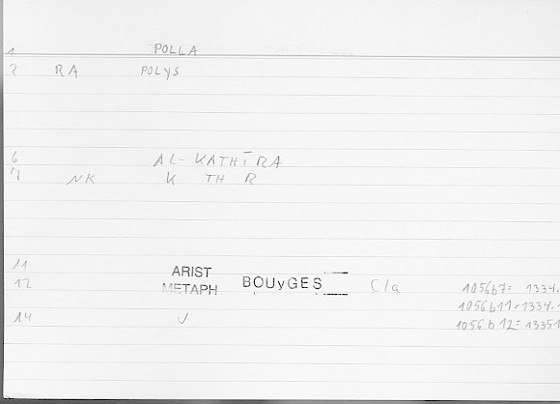 1 POLLA
2 RA POLYS
6 AL-KATHĪRA
7 NK K TH R
11 ARIST
12 METAPH BOUyGES C/a 1056b7= 1334.
1056b11=1334.
14 V 1056b12=13351